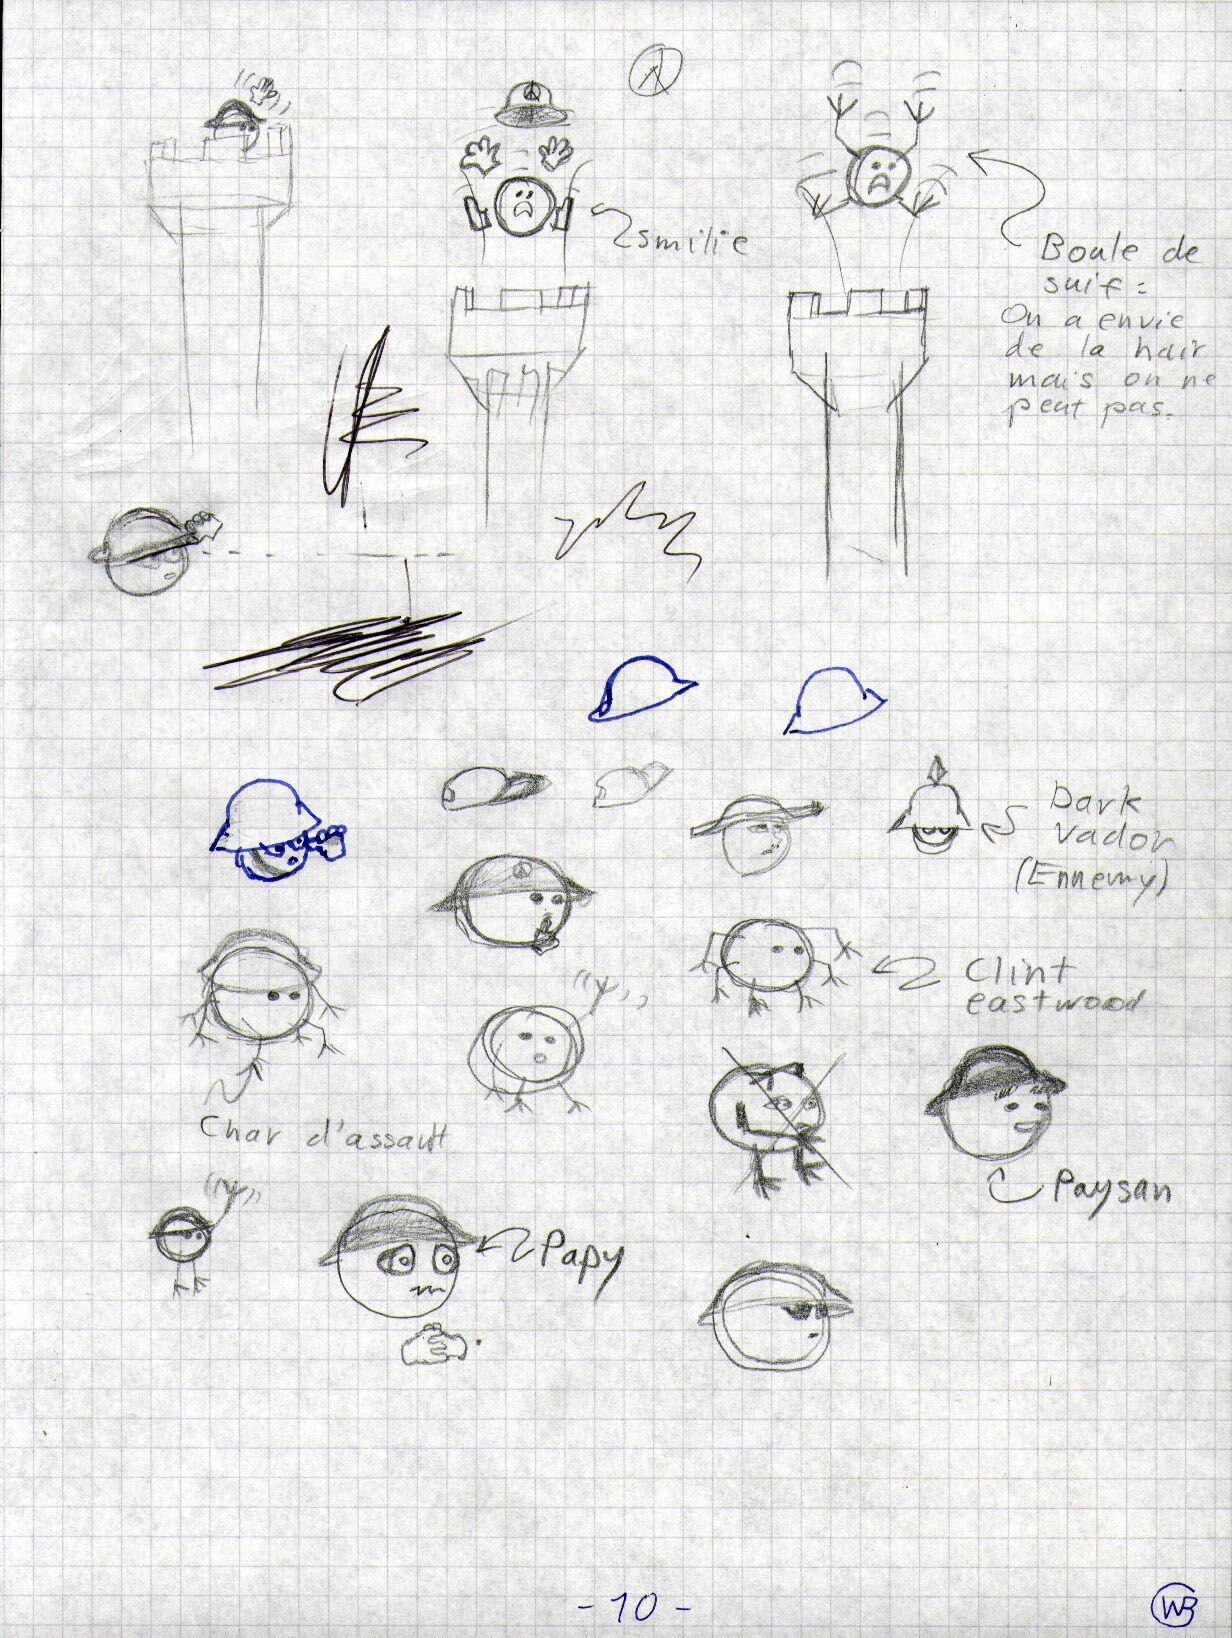 smilie
Boule de
suif :
On a envie
de la hair
mais on ne
peut pas.
Dark
vador
(Ennemy)
Clint
eastwood
Char d'assault
Paysan
Papy
- 10 -
WB